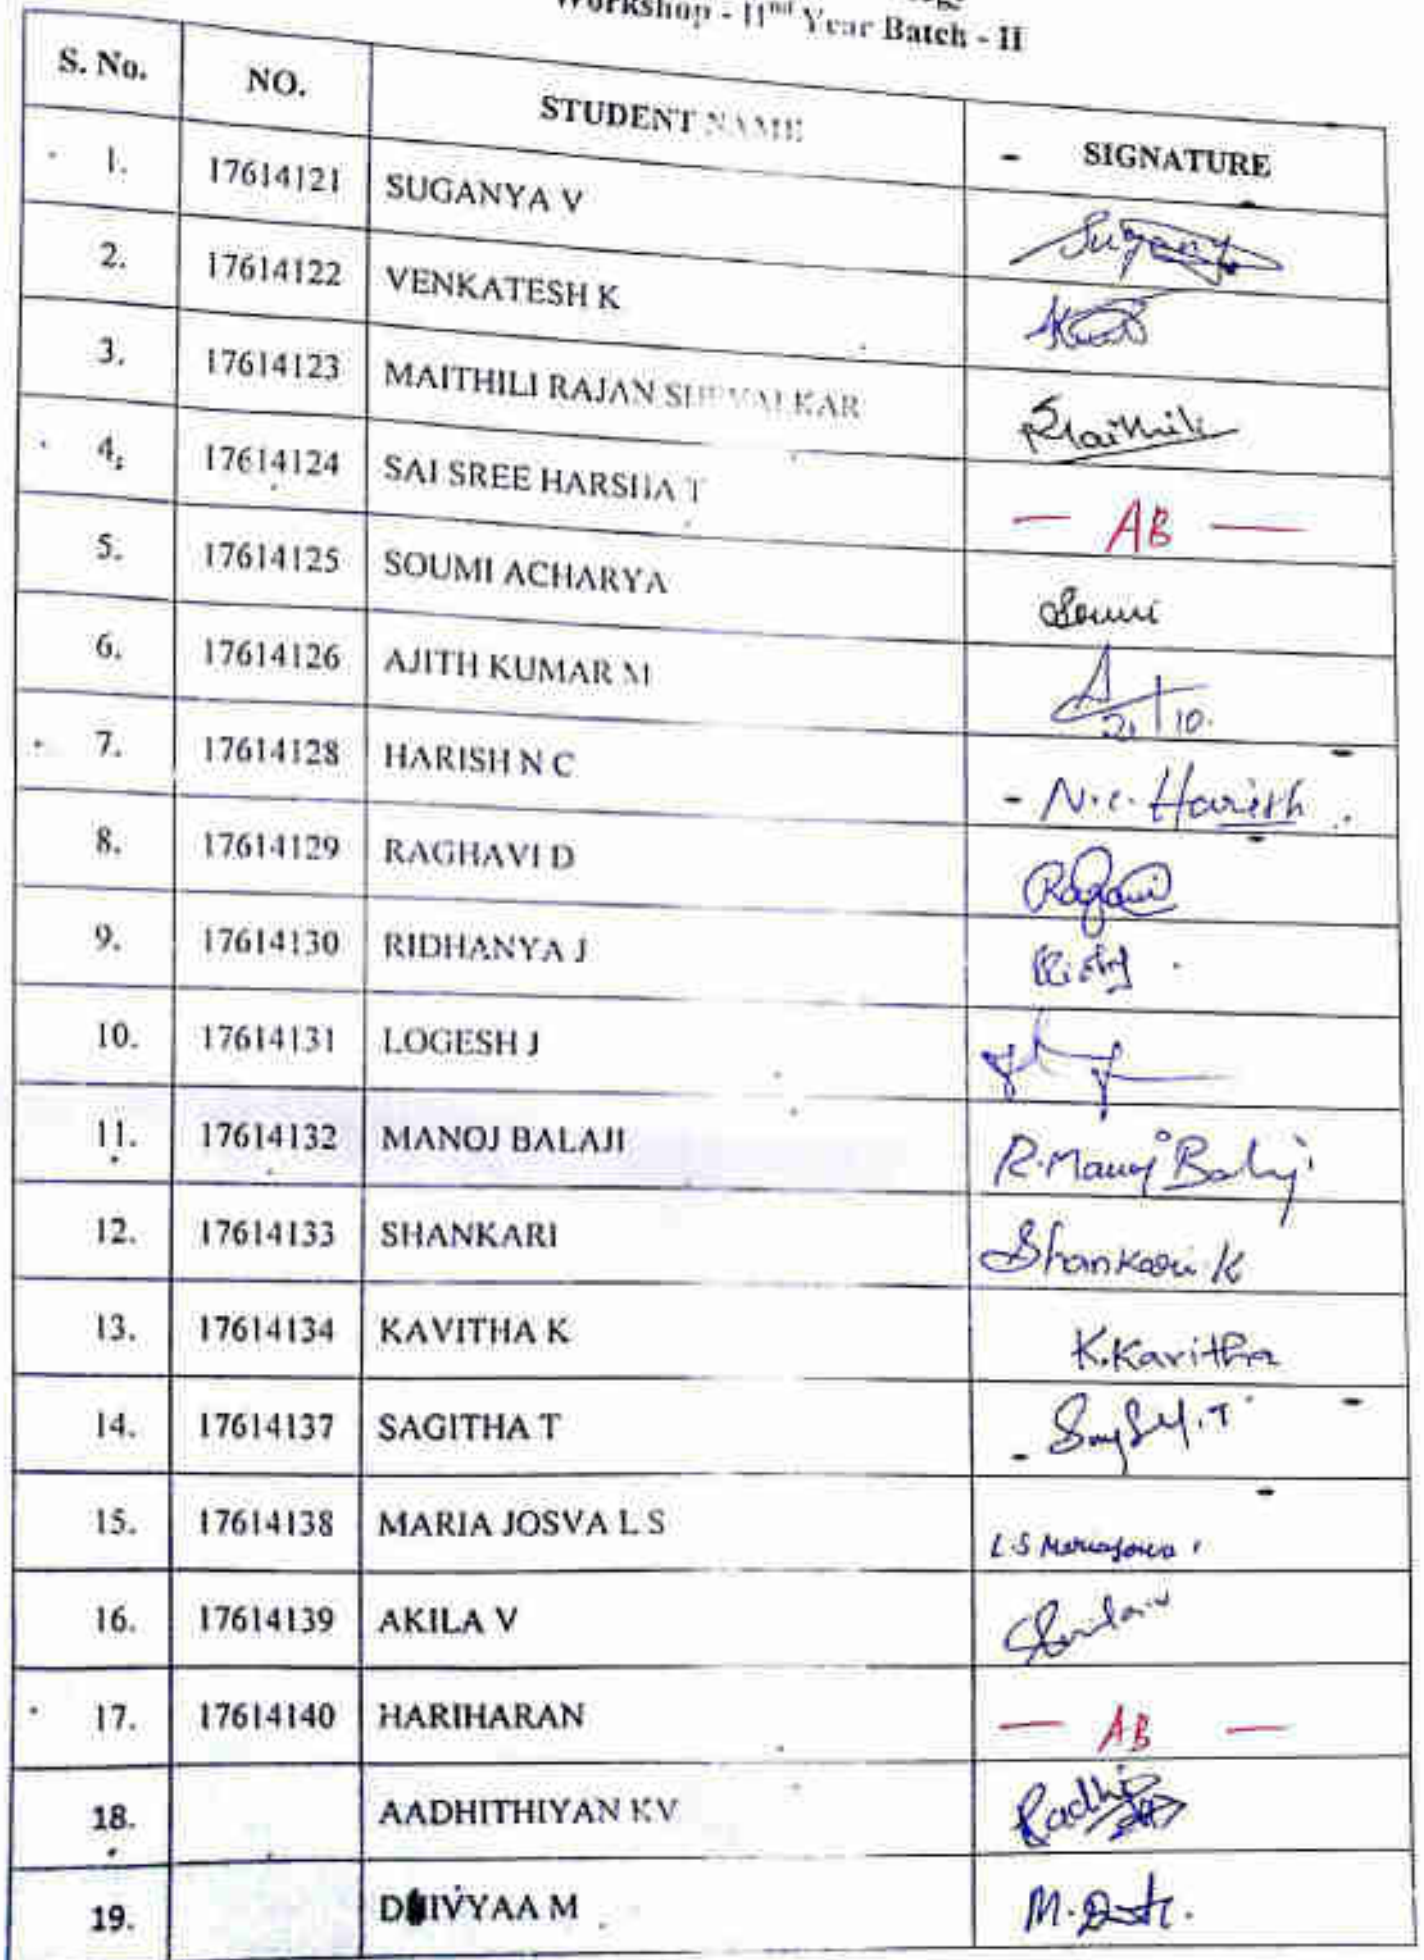 Workshop - IInd Year Batch - II
S. No. NO. STUDENT NAME SIGNATURE
1. 17614121 SUGANYA V Sugany
2. 17614122 VENKATESH K
3. 17614123 MAITHILI RAJAN SHEVALKAR Maithili
4. 17614124 SAI SREE HARSHA T — AB —
5. 17614125 SOUMI ACHARYA Soumi
6. 17614126 AJITH KUMAR M
7. 17614128 HARISH N C N.C. Harish
8. 17614129 RAGHAVI D
9. 17614130 RIDHANYA J
10. 17614131 LOGESH J
11. 17614132 MANOJ BALAJI R. Manoj Balaji
12. 17614133 SHANKARI Shankari K
13. 17614134 KAVITHA K K. Kavitha
14. 17614137 SAGITHA T
15. 17614138 MARIA JOSVA L S L.S Mariajosva
16. 17614139 AKILA V
17. 17614140 HARIHARAN — AB —
18. AADHITHIYAN KV
19. DHIVYAA M